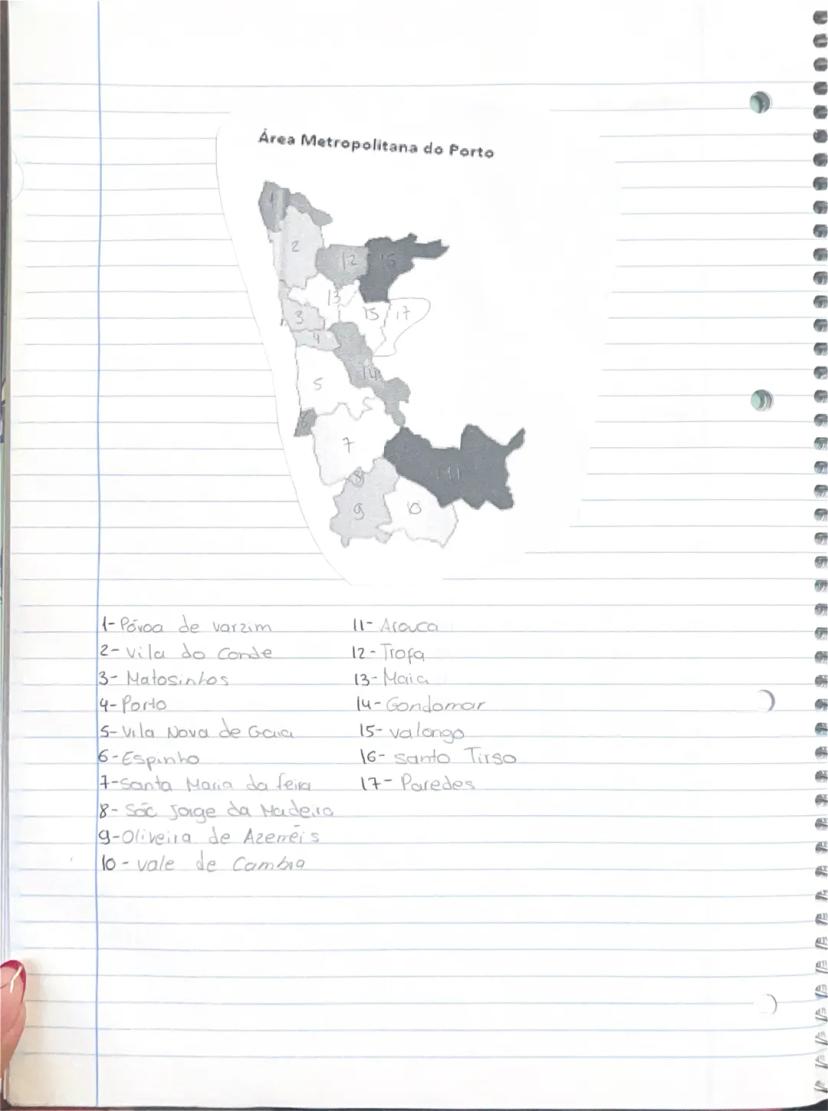 Área Metropolitana do Porto
1
2
12
16
13
3
15
17
4
14
5
7
11
8
9
10
1-Póvoa de varzim
2-Vila do Conde
3-Matosinhos
4-Porto
5-Vila Nova de Gaia
6-Espinho
7-Santa Maria da feira
8-São Jorge da Madeira
9-Oliveira de Azeméis
10-vale de Cambra
11-Arouca
12-Trofa
13-Maia
14-Gondomar
15-valongo
16-santo Tirso
17-Paredes